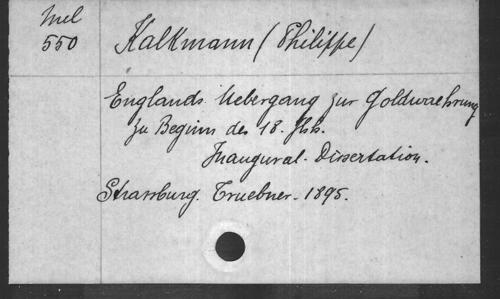 Mel
550
Kalkmann (Philippe)
Englands Uebergang zur Goldwaehrung
zu Beginn des 18. Jhh.
Inaugural-Dissertation.
Strassburg. Truebner. 1895.